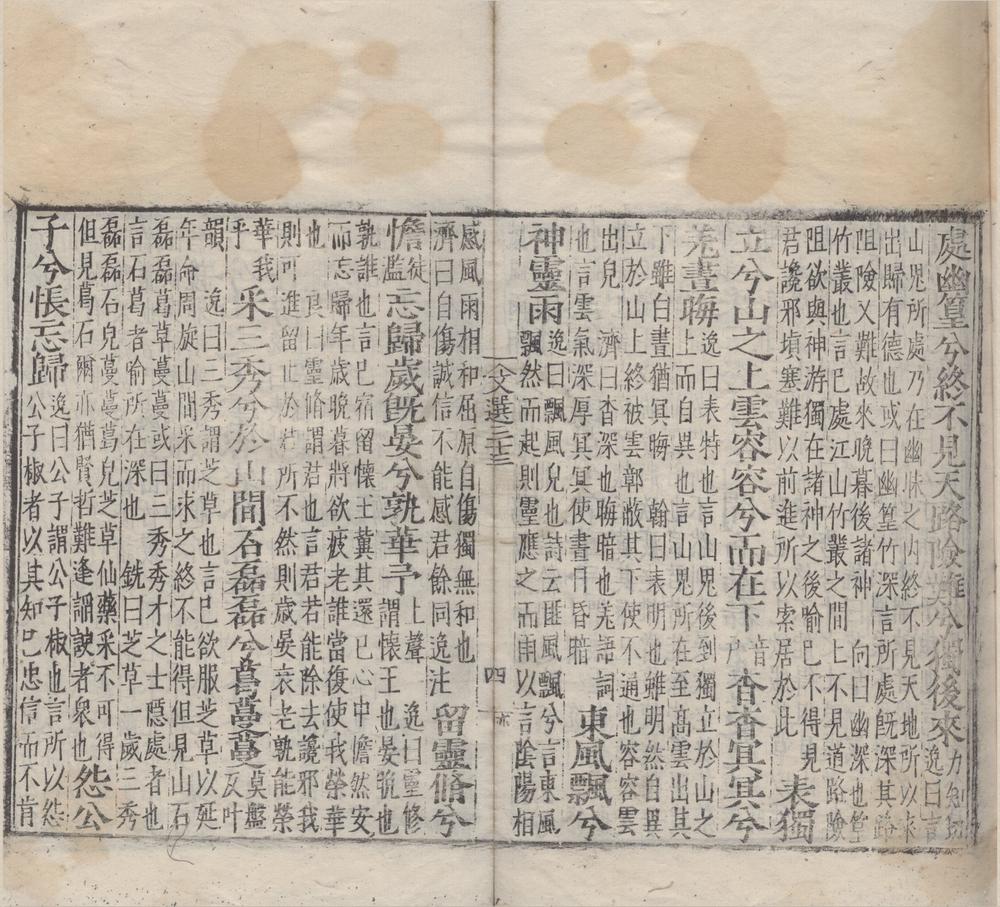 處幽篁兮終不見天路險難兮獨後來逸曰言
山鬼所處乃在幽昧之內終不見天地所以來
出歸有德也或曰幽篁竹深言所處旣深其路
阻險又難故來晚暮後諸神 向曰幽深也篁
竹叢也言巳處江山竹叢之間上不見道路險
阻欲與神游獨在諸神之後喻巳不得見
君讒邪填塞難以前進所以索居於此
表獨
立兮山之上雲容容兮而在下音戶杳杳冥冥兮
羌晝晦
逸曰表特也言山鬼後到獨立於山之
上而自異也言山鬼所在至高雲出其
下雖白晝猶冥晦 翰曰表明也雖明然自異
立於山上終被雲鄣蔽其下使不通也容容雲
出皃 濟曰杳深也晦暗也羌語詞
也言雲氣深厚冥冥使晝日昏暗
東風飄兮
神靈雨
逸曰飄風皃也詩云匪風飄兮言東風
飄然而起則靈應之而雨以言陰陽相
文選三十三
四
感風雨相和屈原自傷獨無和也
濟曰自傷誠信不能感君餘同逸注
留靈脩兮
憺徒濫忘歸歲旣晏兮孰華予
上聲 逸曰靈修
謂懷王也晏晚也
孰誰也言巳宿留懷王冀其還巳心中憺然安
而忘歸年歲晚暮將欲疲老誰當復使我榮華
也 良曰靈脩謂君也言君若能除去讒邪我
則可進留止於君所不然則歲晏衰老孰能榮
華我
乎
采三秀兮於山間石磊磊兮葛蔓蔓
莫盤
反叶
韻 逸曰三秀謂芝草也言巳欲服芝草以延
年命周旋山間采而求之終不能得但見山石
磊磊葛草蔓蔓或曰三秀秀才之士隱處者也
言石葛者喻所在深也 銑曰芝草一歲三秀
磊磊石皃蔓蔓葛皃芝草仙藥采不可得
但見葛石爾亦猶賢哲難逢諂諛者衆也
怨公
子兮悵忘歸
逸曰公子謂公子椒也言所以怨
公子椒者以其知巳忠信而不肯